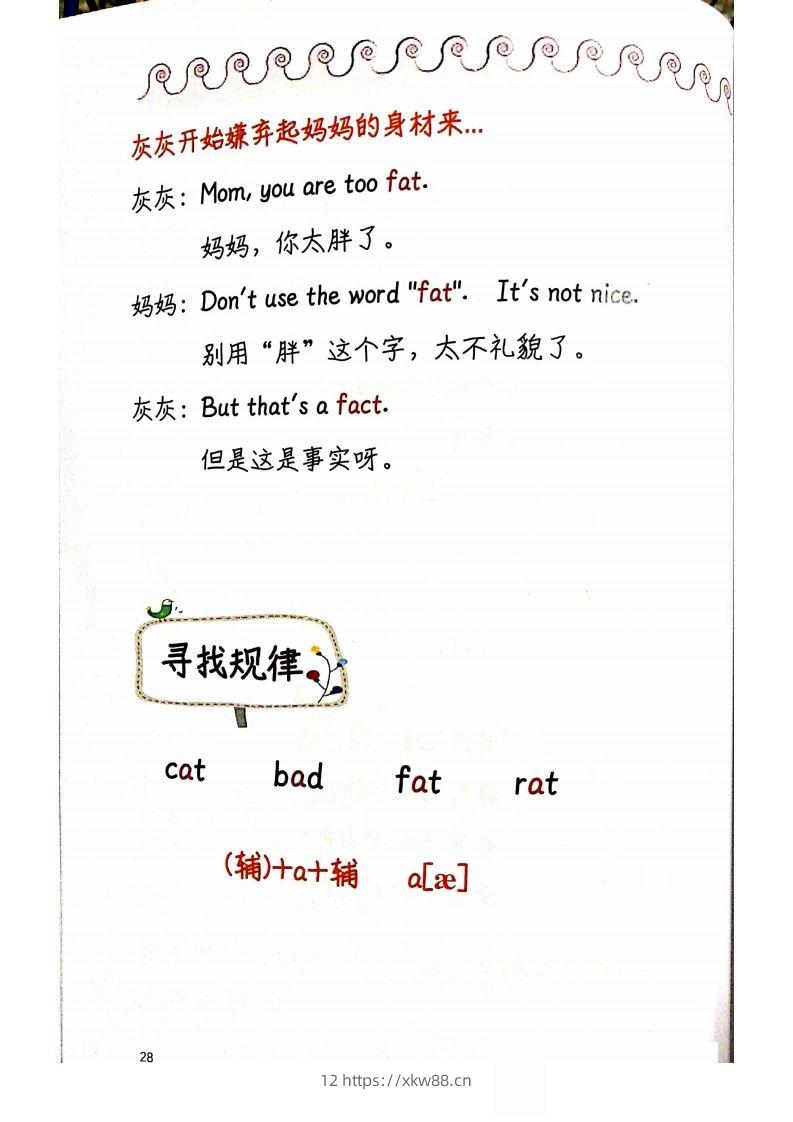 灰灰开始嫌弃起妈妈的身材来...
灰灰：Mom, you are too fat.
妈妈，你太胖了。
妈妈：Don't use the word "fat". It's not nice.
别用“胖”这个字，太不礼貌了。
灰灰：But that's a fact.
但是这是事实呀。
寻找规律
cat bad fat rat
(辅)+a+辅 a[æ]
28
12 https://xkw88.cn